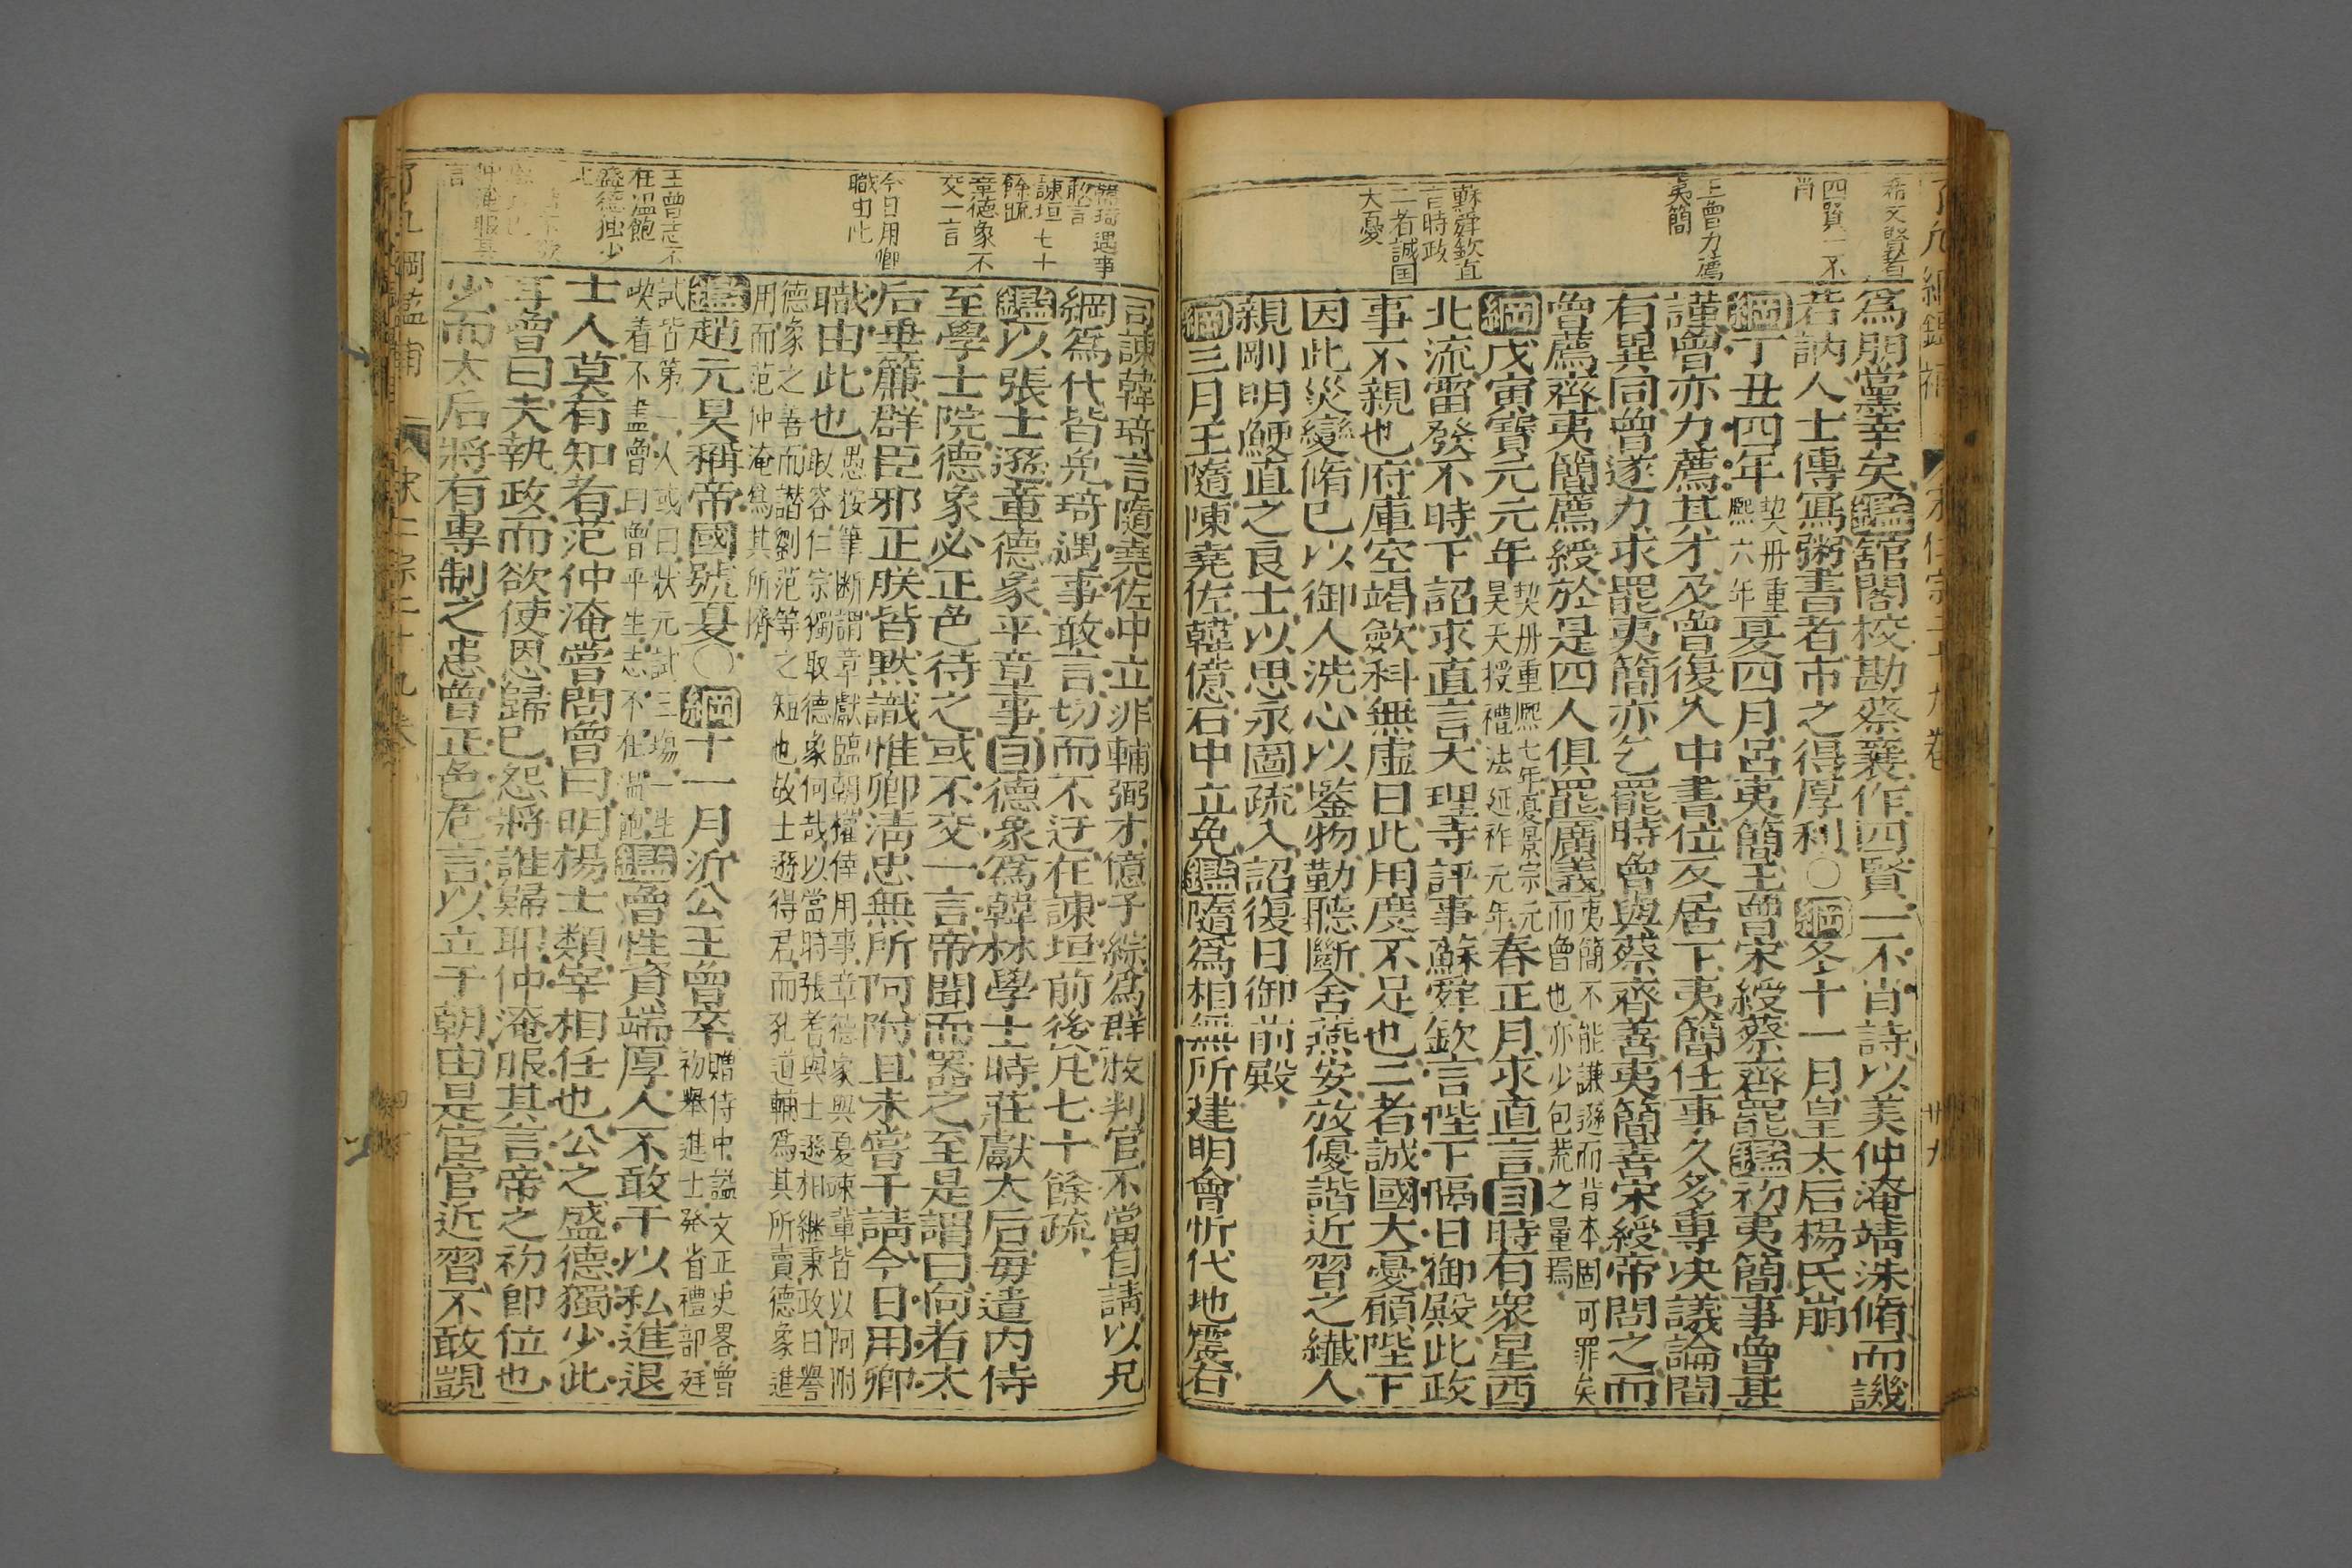 希文賢者
四賢一不
肖
王曾力薦
夷簡
蘇舜欽直
言時政
二者誠国
大憂
爲朋黨幸矣鑑舘閣校勘蔡襄作四賢一不肖詩以美仲淹靖洙脩而譏
若訥人士傳寫粥書者市之得厚利○綱冬十一月皇太后楊氏崩
綱丁丑四年契丹重熙六年夏四月呂夷簡王曾宋綬蔡齊罷鑑初夷簡事曾甚
謹曾亦力薦其才及曾復入中書位反居下夷簡任事久多專决議論間
有異同曾遂力求罷夷簡亦乞罷時曾與蔡齊善夷簡善宋綬帝問之而
曾薦齊夷簡薦綬於是四人俱罷廣義夷簡不能謙遜而背本固可罪矣
而曾也亦少包荒之量焉
綱戊寅寶元元年契丹重熙七年夏景宗元
昊天授禮法延祚元年春正月求直言目時有衆星西
北流雷發不時下詔求直言大理寺評事蘇舜欽言陛下隔日御殿此政
事不親也府庫空竭歛科無虛日此用度不足也二者誠國大憂願陛下
因此災變脩己以御人洗心以鑒物勤聽斷舍燕安放優諧近習之纖人
親剛明鯁直之良士以思永圖疏入詔復日御前殿
綱三月王隨陳堯佐韓億石中立免鑑隨爲相無所建明會忻代地震右
了凡綱鑑補 宋仁宗二十九卷 卅九
韓琦遇事
敢言
諫垣七十
餘疏
章德象不
交一言
今日用卿
職由此
王曾志不
在温飽
盛德独少
此
仲淹服其
言
司諫韓琦言隨堯佐中立非輔弼才億子綜爲群牧判官不當自請以兄
綱爲代皆免琦遇事敢言切而不迂在諫垣前後凡七十餘疏
鑑以張士遜章德象平章事目德象爲韓林學士時莊獻太后毎遣内侍
至學士院德象必正色待之或不交一言帝聞而器之至是謂曰向者太
后垂簾群臣邪正朕皆默識惟卿清忠無所阿附且未嘗干請今日用卿
職由此也愚按筆断謂章獻臨朝權倖用事章德象與夏竦輩皆以阿附
取容仁宗獨取德象何哉以當時張耆與士遜相継秉政日譽
德象之善而譛劉范等之短也故士遜得君而孔道輔爲其所賣德象進
用而范仲淹爲其所擠
鑑趙元昊稱帝國號夏○綱十一月沂公王曾卒贈侍中謚文正史畧曾
初舉進士発省禮部廷
試皆第一人或曰状元試三塲一生
喫着不盡曾曰曾平生志不在温飽鑑曾性資端厚人不敢干以私進退
士人莫有知者范仲淹嘗問曾曰明楊士類宰相任也公之盛德獨少此
耳曾曰夫執政而欲使恩歸己怨將誰歸耶仲淹服其言帝之初即位也
少而太后將有專制之患曾正色危言以立于朝由是宦官近習不敢覬
了凡綱鑑補 宋仁宗二十九卷